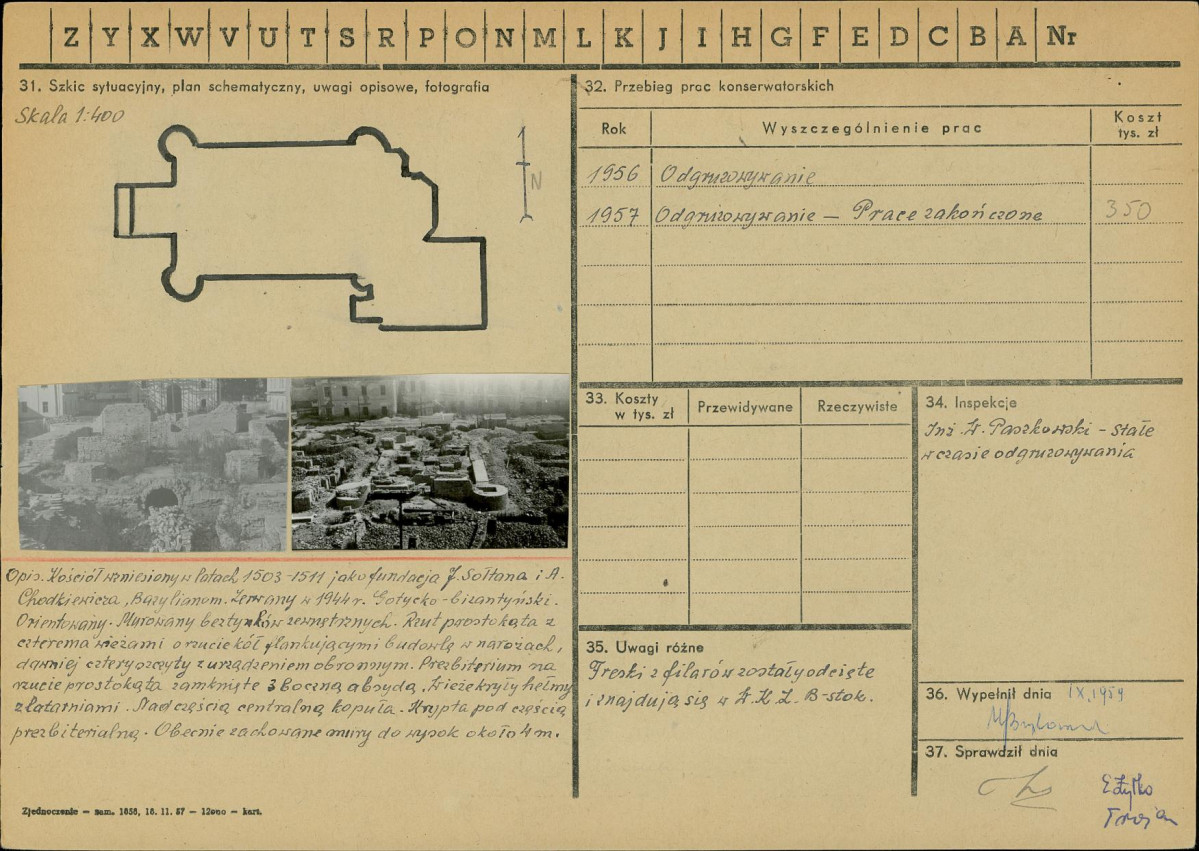 Z Y X W V U T S R P O N M L K J I H G F E D C B A Nr
31. Szkic sytuacyjny, plan schematyczny, uwagi opisowe, fotografia
Skala 1:400
N
Opis. Kościół wzniesiony w latach 1503-1511 jako fundacja J. Sołtana i A.
Chodkiewicza, Bazylianom. Zerwany w 1944 r. Gotycko-bizantyński.
Orientowany. Murowany bez tynków zewnętrznych. Rzut prostokąta z
czterema wieżami o rzucie kół flankującymi budowlę w narożach,
dawniej cztery szczyty z urządzeniem obronnym. Prezbiterium na
rzucie prostokąta zamknięte 3 boczną absydą, Wieże kryły hełmy
z latarniami. Nad częścią centralną kopuła. Krypta pod częścią
prezbiterialną. Obecnie zachowane mury do wysok około 4 m.
Zjednoczenie — zam. 1656, 16. 11. 57 — 12000 — kart.
32. Przebieg prac konserwatorskich
Rok Wyszczególnienie prac Koszt tys. zł
1956 Odgruzowywanie
1957 Odgruzowywanie — Prace zakończone 350
33. Koszty w tys. zł Przewidywane Rzeczywiste
34. Inspekcje
Inż. W. Paszkowski - stałe
w czasie odgruzowywania
35. Uwagi różne
Freski z filarów zostały odcięte
i znajdują się w W.K.Z. B-stok.
36. Wypełnił dnia IX.1959
37. Sprawdził dnia
Trojan